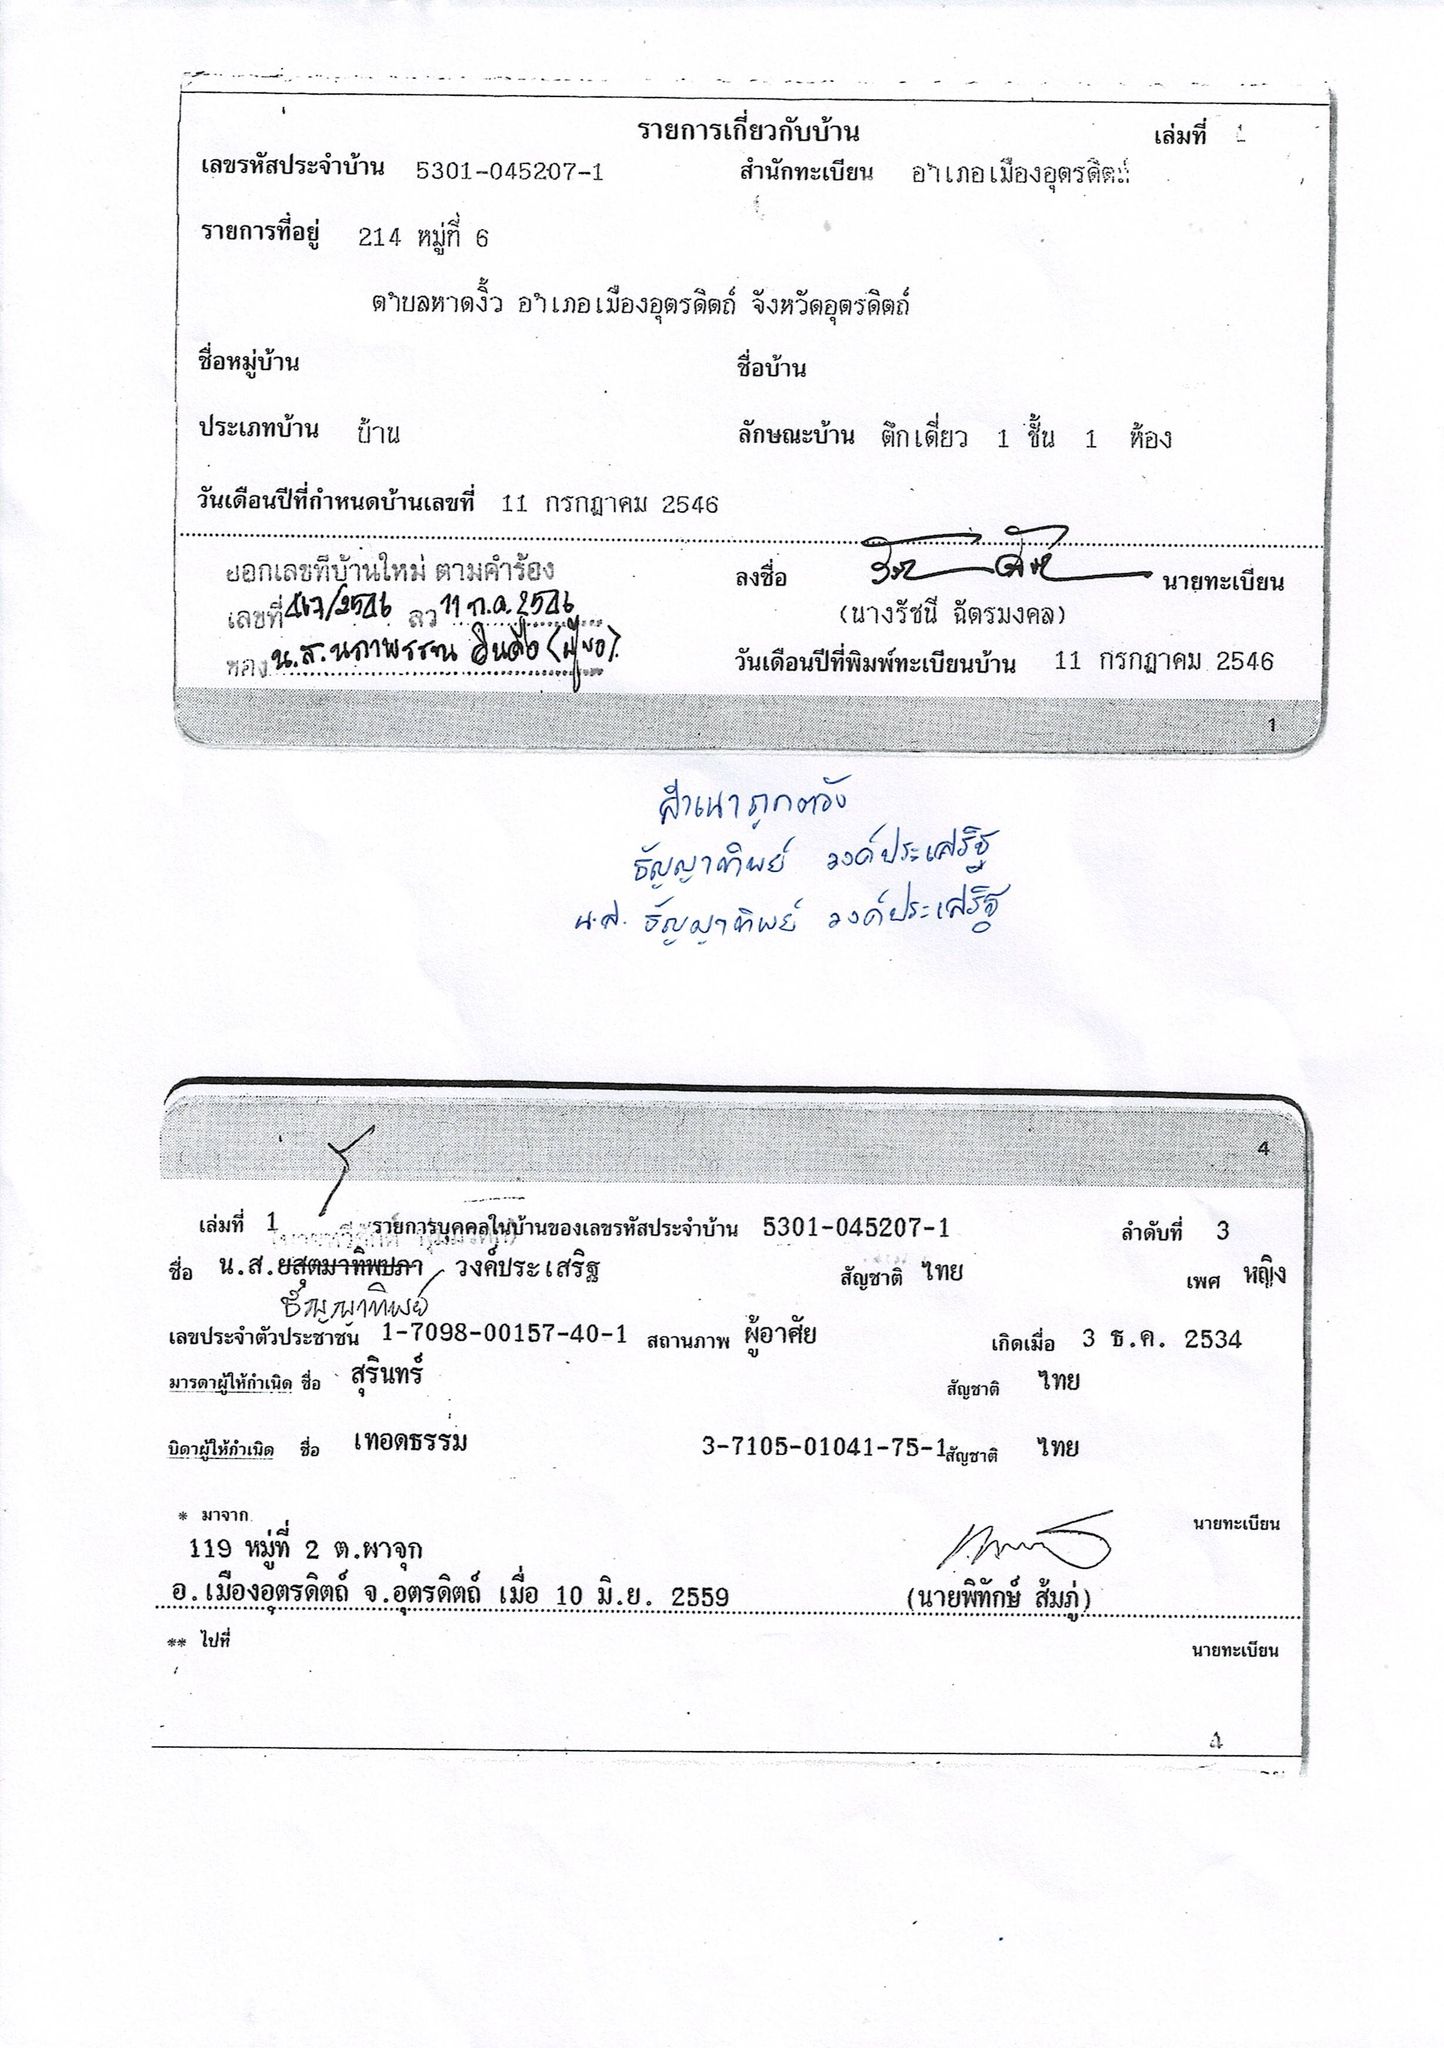 รายการเกี่ยวกับบ้าน เล่มที่ 1
เลขรหัสประจำบ้าน 5301-045207-1 สำนักทะเบียน อำเภอเมืองอุตรดิตถ์
รายการที่อยู่ 214 หมู่ที่ 6
ตำบลหาดงิ้ว อำเภอเมืองอุตรดิตถ์ จังหวัดอุตรดิตถ์
ชื่อหมู่บ้าน ชื่อบ้าน
ประเภทบ้าน บ้าน ลักษณะบ้าน ตึกเดี่ยว 1 ชั้น 1 ห้อง
วันเดือนปีที่กำหนดบ้านเลขที่ 11 กรกฎาคม 2546
ออกเลขที่บ้านใหม่ ตามคำร้อง ลงชื่อ นายทะเบียน
เลขที่ /2546 ลว 11 ก.ค. 2546 (นางรัชนี ฉัตรมงคล)
ของ น.ส.นภาพรรณ วันเดือนปีที่พิมพ์ทะเบียนบ้าน 11 กรกฎาคม 2546
1
สำเนาถูกต้อง
ธัญญาทิพย์ วงค์ประเสริฐ
น.ส. ธัญญาทิพย์ วงค์ประเสริฐ
4
เล่มที่ 1 รายการบุคคลในบ้านของเลขรหัสประจำบ้าน 5301-045207-1 ลำดับที่ 3
ชื่อ น.ส. วงค์ประเสริฐ สัญชาติ ไทย เพศ หญิง
ธัญญาทิพย์
เลขประจำตัวประชาชน 1-7098-00157-40-1 สถานภาพ ผู้อาศัย เกิดเมื่อ 3 ธ.ค. 2534
มารดาผู้ให้กำเนิด ชื่อ สุรินทร์ สัญชาติ ไทย
บิดาผู้ให้กำเนิด ชื่อ เทอดธรรม 3-7105-01041-75-1 สัญชาติ ไทย
* มาจาก นายทะเบียน
119 หมู่ที่ 2 ต.ผาจุก
อ.เมืองอุตรดิตถ์ จ.อุตรดิตถ์ เมื่อ 10 มิ.ย. 2559 (นายพิทักษ์ ส้มภู่)
** ไปที่ นายทะเบียน